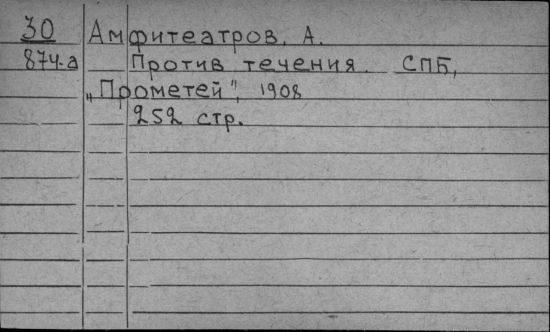 30 Амфитеатров, А.
874-а Против течения. СПБ,
„Прометей", 1908
252 стр.